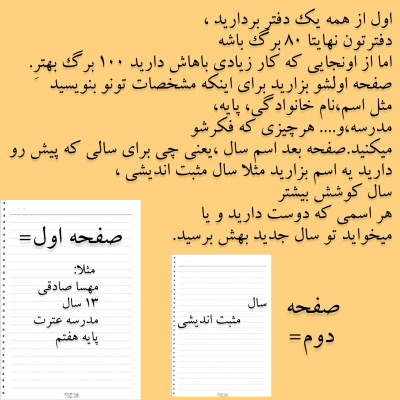 اول از همه یک دفتر بردارید ،
دفترتون نهایتا ۸۰ برگ باشه
اما از اونجایی که کار زیادی باهاش دارید ۱۰۰ برگ بهترِ.
صفحه اولشو بزارید برای اینکه مشخصات تونو بنویسید
مثل اسم،نام خانوادگی، پایه،
مدرسه،و.... هرچیزی که فکرشو
میکنید.صفحه بعد اسم سال ،یعنی چی برای سالی که پیش رو
دارید یه اسم بزارید مثلا سال مثبت اندیشی ،
سال کوشش بیشتر
هر اسمی که دوست دارید و یا
میخواید تو سال جدید بهش برسید.
صفحه اول=
مثلا:
مهسا صادقی
۱۳ سال
مدرسه عترت
پایه هفتم
صفحه
دوم=
سال
مثبت اندیشی